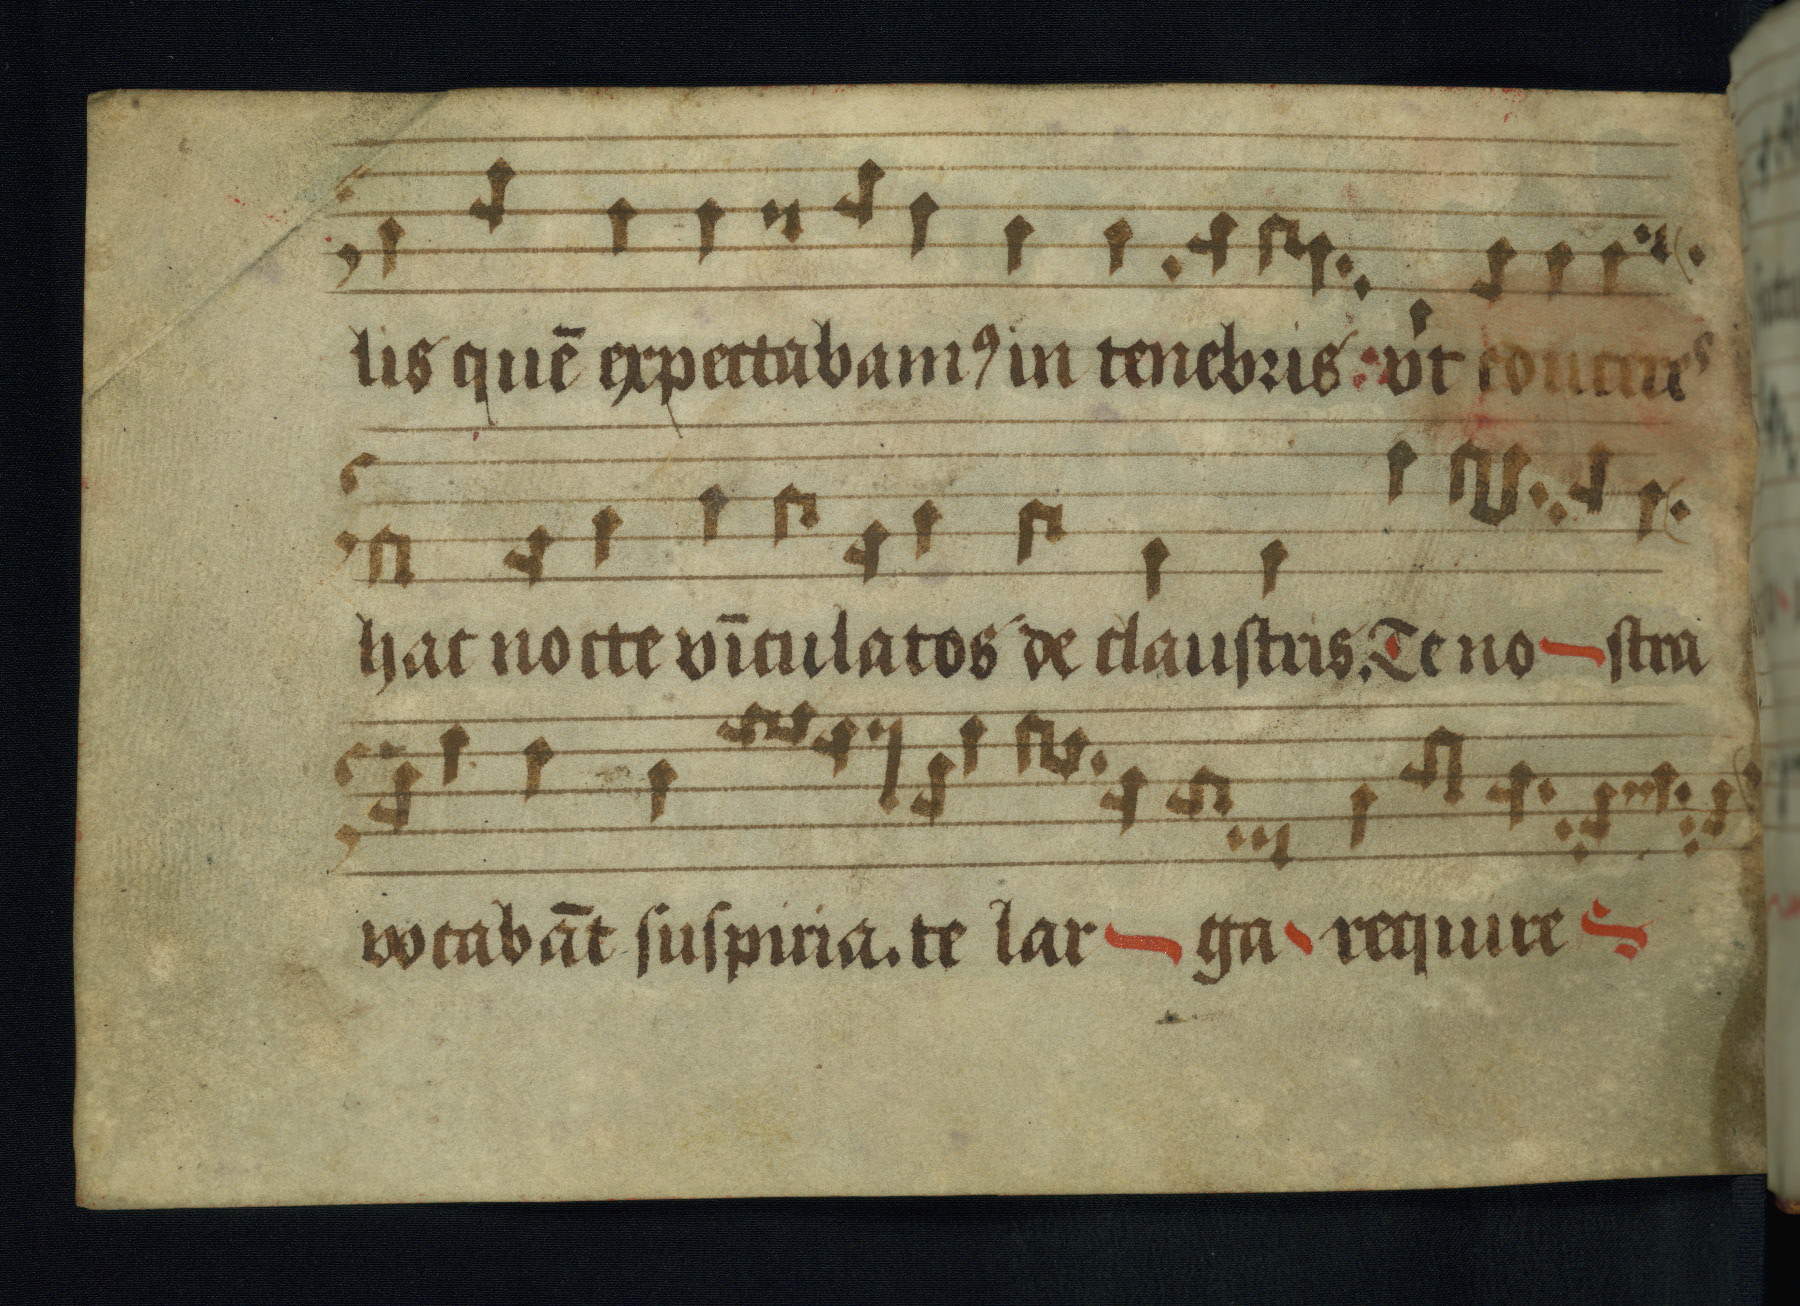 lis quē expectabamꝰ in tenebris: vt educeres
hac nocte vīculatos de claustris. Te no stra
vocabāt suspiria. te lar ga require